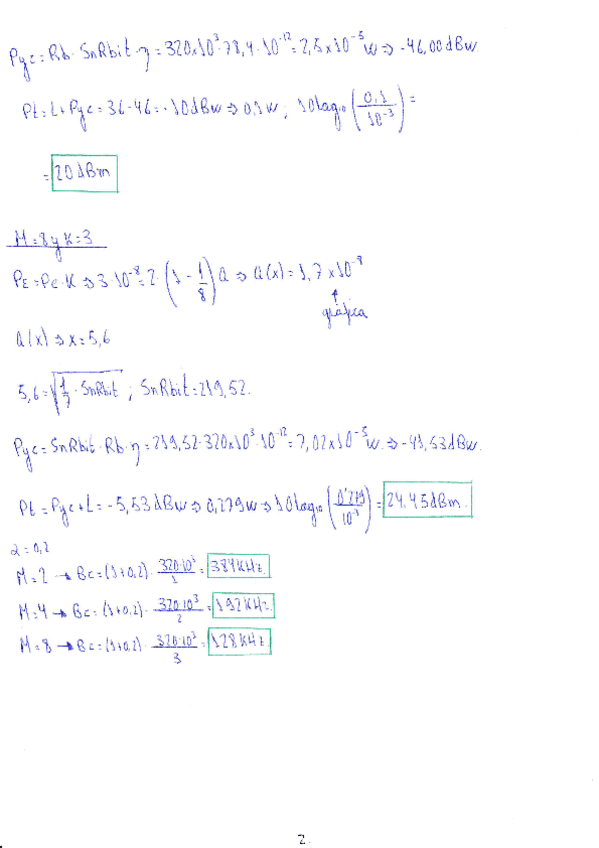 Pyc = Rb · SnRbit · η = 320x10³ · 78,4 · 10⁻¹² = 2,5 x 10⁻⁵ w => -46,00 dBw.
Pt = L + Pyc = 36 - 46 = -10 dBw => 0,1 w ; 10 log₁₀ (0,1 / 10⁻³) =
= 20 dBm
M = 8 y K = 3
PE = Pe · K => 3 · 10⁻⁸ = 2 · (1 - 1/8) Q => Q(x) = 1,7 x 10⁻⁸
gráfica
Q(x) => x = 5,6
5,6 = √(1/7 · SnRbit) ; SnRbit = 219,52.
Pyc = SnRbit · Rb · η = 219,52 · 320x10³ · 10⁻¹² = 7,02 x 10⁻⁵ w => -41,53 dBw.
Pt = Pyc + L = -5,53 dBw => 0,279 w => 10 log₁₀ (0'279 / 10⁻³) = 24.45 dBm.
α = 0,2
M = 2 → Bc = (1+0,2) · 320·10³ / 1 = 384 KHz.
M = 4 → Bc = (1+0,2) · 320·10³ / 2 = 192 KHz.
M = 8 → Bc = (1+0,2) · 320·10³ / 3 = 128 KHz
2.